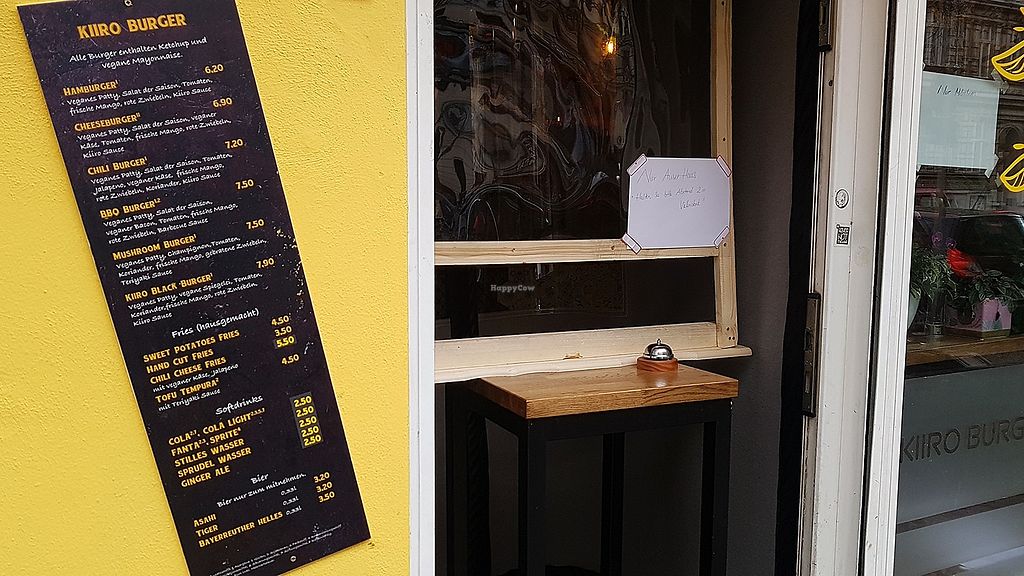 KIIRO BURGER
Alle Burger enthalten Ketchup und
vegane Mayonnaise.
HAMBURGER¹ 6.20
Veganes Patty, Salat der Saison, Tomaten,
frische Mango, rote Zwiebeln, Kiiro Sauce
CHEESEBURGER 6.90
Veganes Patty, Salat der Saison, veganer
Käse, Tomaten, frische Mango, rote Zwiebeln,
Kiiro Sauce
CHILI BURGER¹ 7.20
Veganes Patty, Salat der Saison, Tomaten,
Jalapeno, veganer Käse, frische Mango,
rote Zwiebeln, Koriander, Kiiro Sauce
BBQ BURGER¹² 7.50
Veganes Patty, Salat der Saison,
veganer Bacon, Tomaten, frische Mango,
rote Zwiebeln, Barbecue Sauce
MUSHROOM BURGER¹ 7.50
Veganes Patty, Champignon, Tomaten,
Koriander, frische Mango, gebratene Zwiebeln,
Teriyaki Sauce
KIIRO BLACK BURGER¹ 7.90
Veganes Patty, vegane Spiegelei, Tomaten,
Koriander, frische Mango, rote Zwiebeln,
Kiiro Sauce
Fries (hausgemacht)
SWEET POTATOES FRIES 4.50
HAND CUT FRIES 3.50
CHILI CHEESE FRIES 5.50
mit veganer Käse, Jalapeno
TOFU TEMPURA² 4.50
mit Teriyaki Sauce
Softdrinks
COLA, COLA LIGHT 2.50
FANTA, SPRITE 2.50
STILLES WASSER 2.50
SPRUDEL WASSER 2.50
GINGER ALE 2.50
Bier
Bier nur zum mitnehmen.
ASAHI 0,33l 3.20
TIGER 0,33l 3.20
BAYERREUTHER HELLES 0,33l 3.50
Nur Ausser Haus
HappyCow
KIIRO BURG